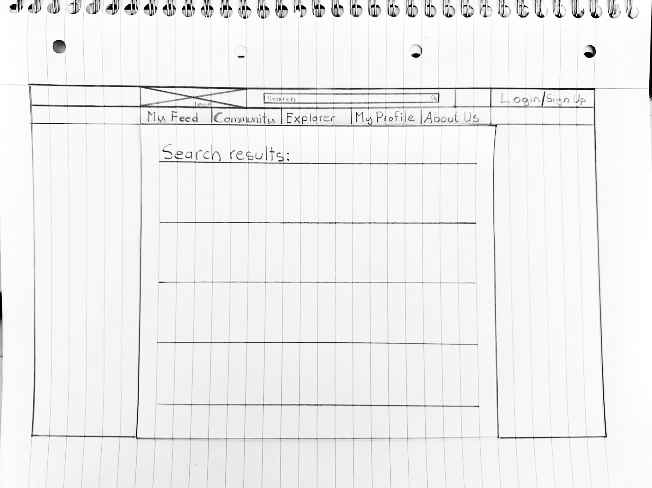 Logo Search Login/Sign Up
My Feed Community Explorer My Profile About Us
Search results: